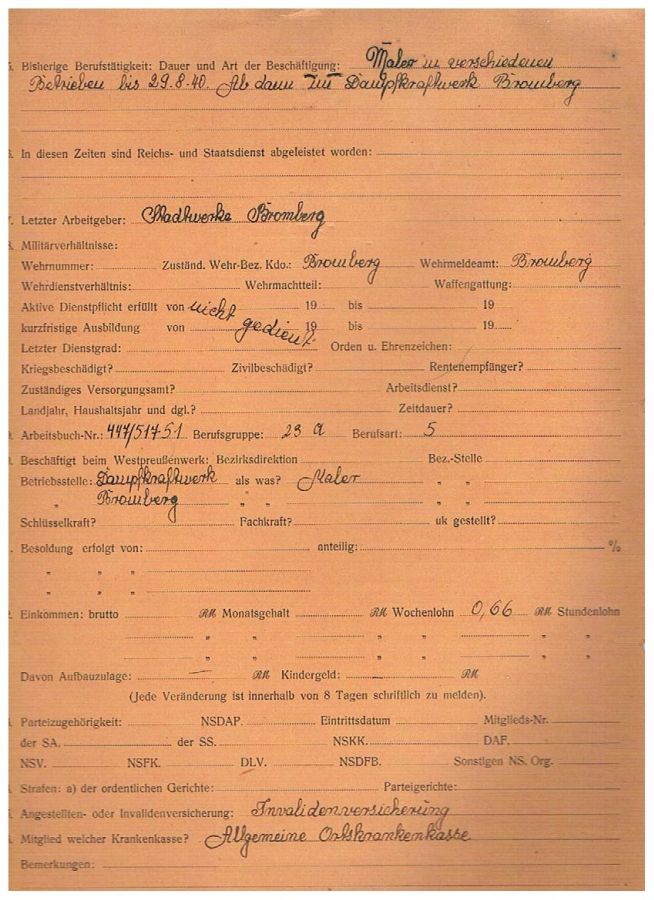 . Bisherige Berufstätigkeit: Dauer und Art der Beschäftigung: Maler in verschiedenen
Betrieben bis 29.8.40. Ab dann im Dampfkraftwerk Bromberg
. In diesen Zeiten sind Reichs- und Staatsdienst abgeleistet worden:
. Letzter Arbeitgeber: Stadtwerke Bromberg
. Militärverhältnisse:
Wehrnummer: Zuständ. Wehr-Bez. Kdo.: Bromberg Wehrmeldeamt: Bromberg
Wehrdienstverhältnis: Wehrmachtteil: Waffengattung:
Aktive Dienstpflicht erfüllt von nicht 19 bis 19
kurzfristige Ausbildung von gedient. 19 bis 19
Letzter Dienstgrad: Orden u. Ehrenzeichen:
Kriegsbeschädigt? Zivilbeschädigt? Rentenempfänger?
Zuständiges Versorgungsamt? Arbeitsdienst?
Landjahr, Haushaltsjahr und dgl.? Zeitdauer?
. Arbeitsbuch-Nr.: 447/51751 Berufsgruppe: 23 a Berufsart: 5
. Beschäftigt beim Westpreußenwerk: Bezirksdirektion Bez.-Stelle
Betriebsstelle: Dampfkraftwerk als was? Maler " "
" Bromberg " " " "
Schlüsselkraft? Fachkraft? uk gestellt?
. Besoldung erfolgt von: anteilig: %
" " "
" " "
. Einkommen: brutto RM Monatsgehalt RM Wochenlohn 0,66 RM Stundenlohn
" " " " " "
" " " " " "
Davon Aufbauzulage: — RM Kindergeld: — RM
(Jede Veränderung ist innerhalb von 8 Tagen schriftlich zu melden).
. Parteizugehörigkeit: NSDAP. Eintrittsdatum Mitglieds-Nr.
der SA. der SS. NSKK. DAF.
NSV. NSFK. DLV. NSDFB. Sonstigen NS. Org.
. Strafen: a) der ordentlichen Gerichte: Parteigerichte:
. Angestellten- oder Invalidenversicherung: Invalidenversicherung
. Mitglied welcher Krankenkasse? Allgemeine Ortskrankenkasse
Bemerkungen: